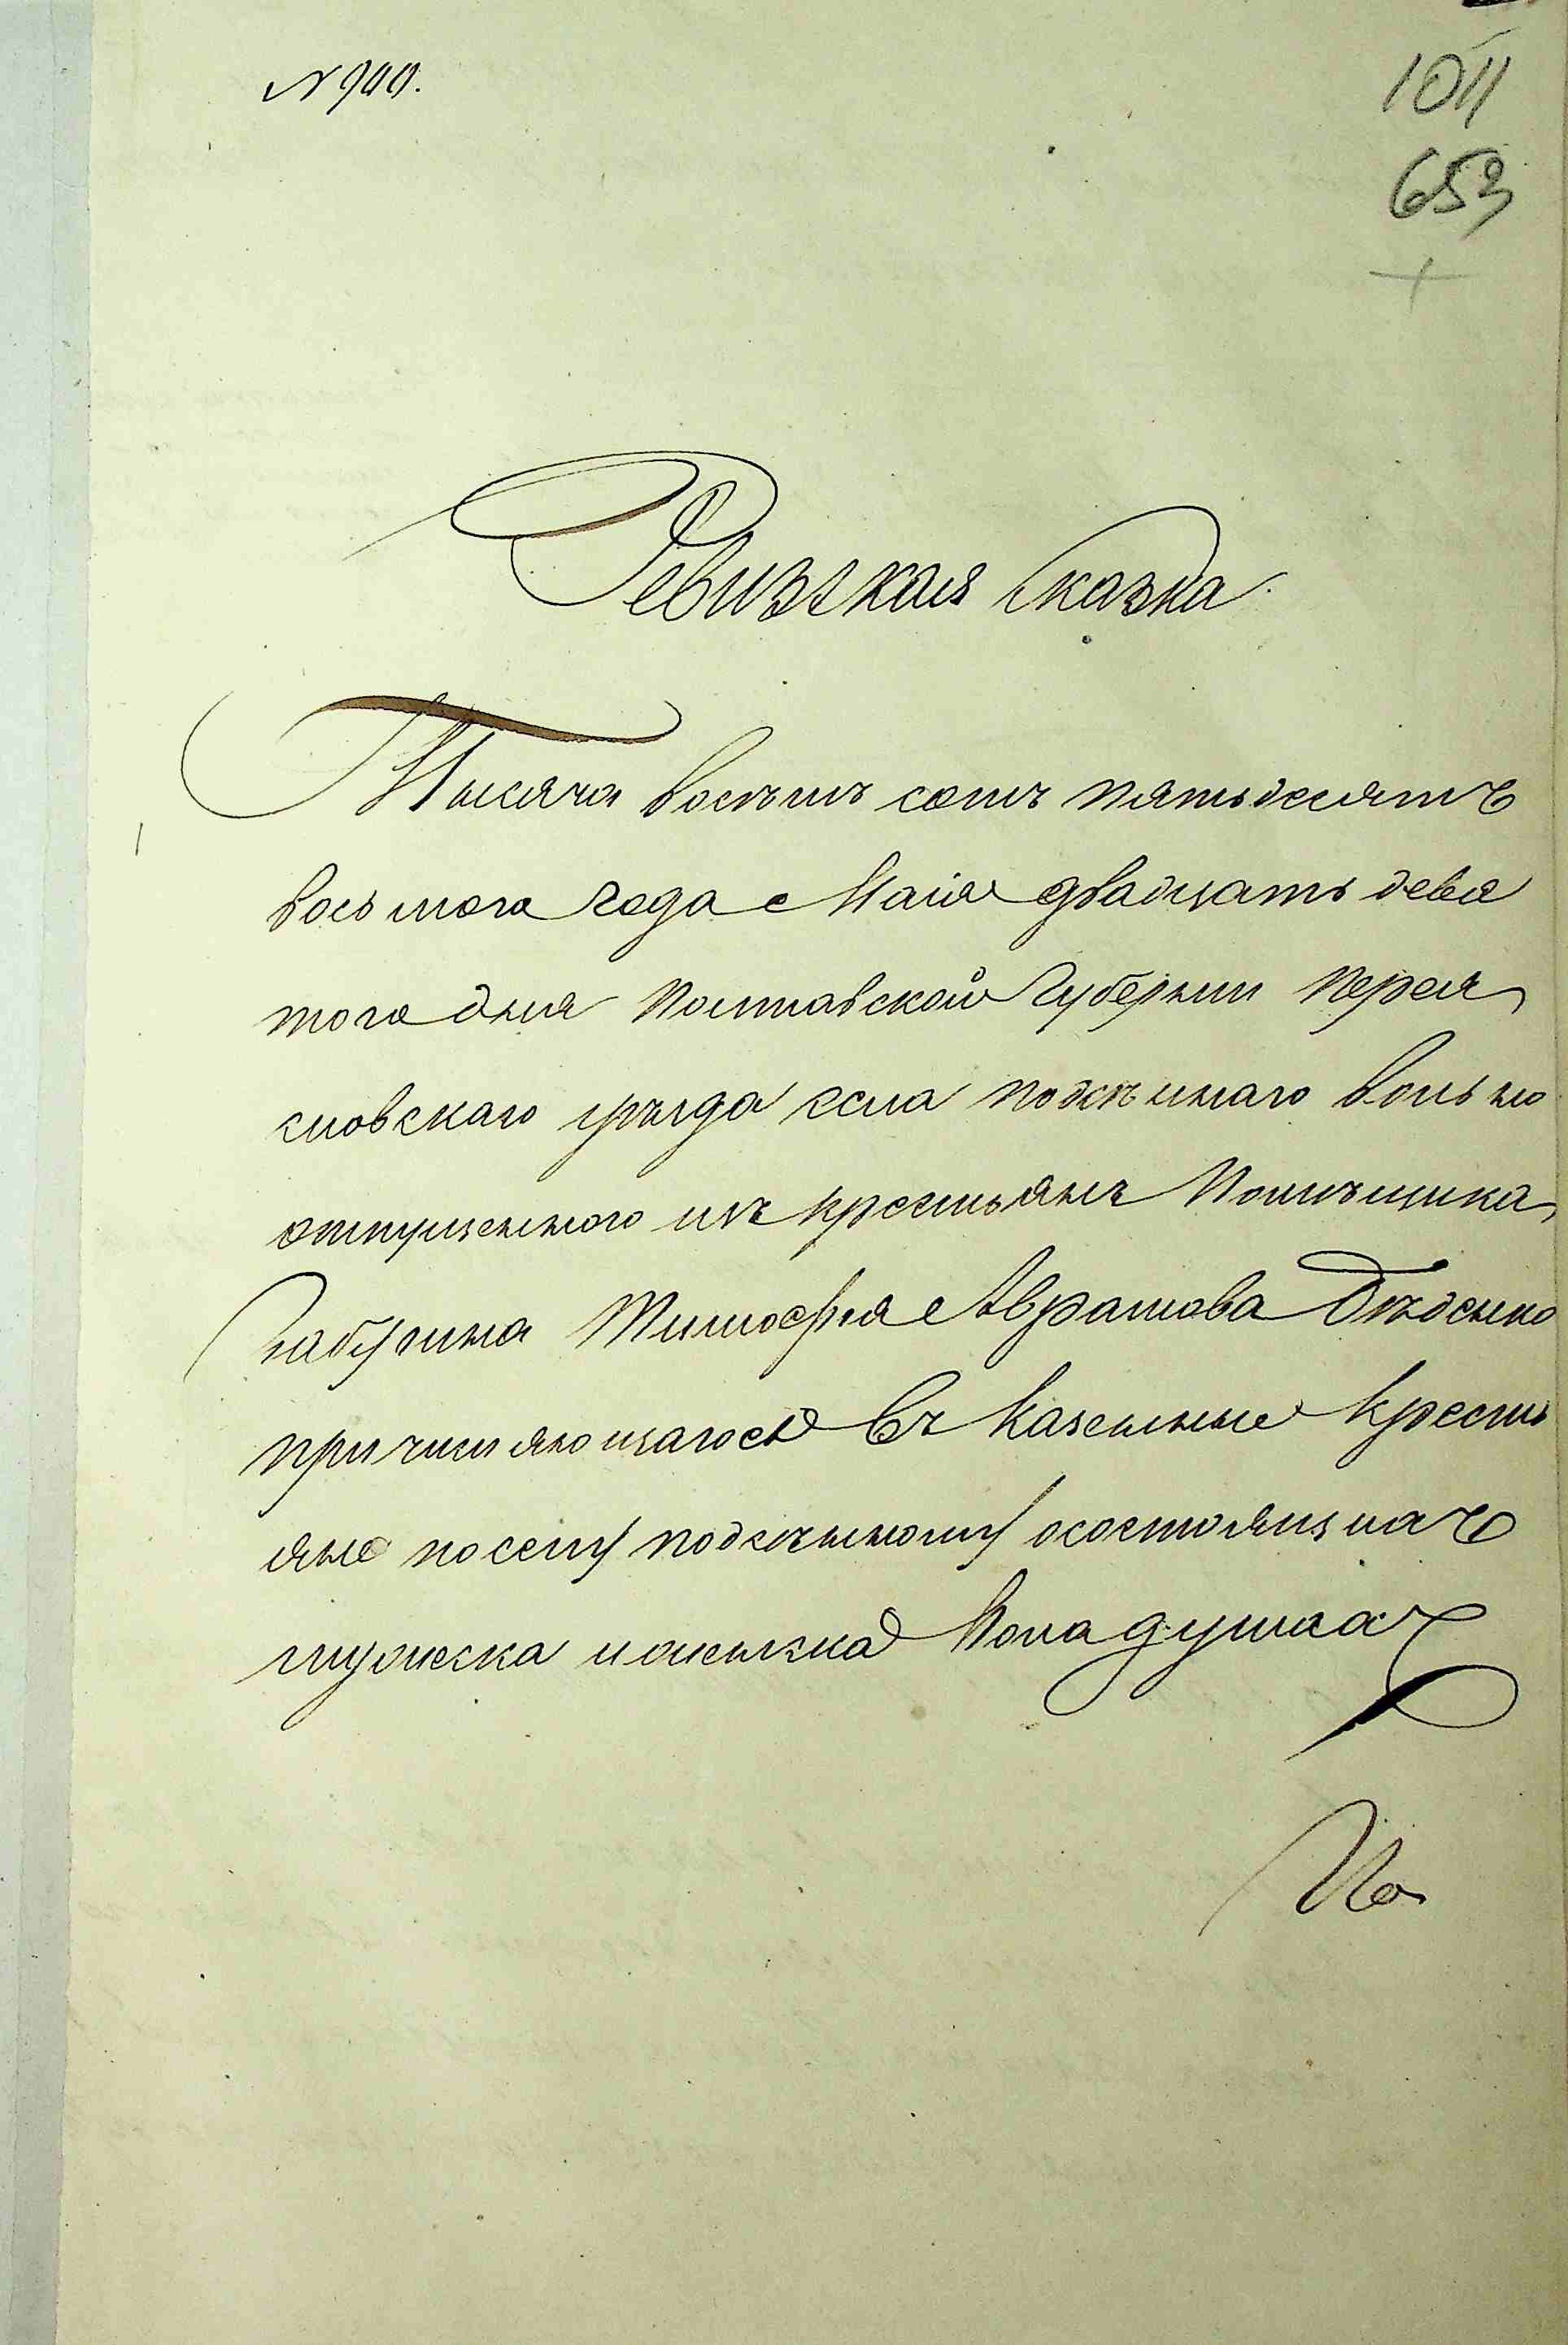 N 900.
1011
653
Ревизская сказка.
Тысяча восѣмъ сотъ пятьдесятъ
восьмого года Маія двадцать девя
того дня Полтавской Губерніи Перея
словскаго уѣзда села Подсѣннаго вольно
отпущенного изъ крестьянъ Помѣщика
Тимофея Аврамова Бѣденко
причисляющагося въ казенные кресть
яне по селу подсѣнному осостоящихъ
мужеска и женска пола душахъ
По